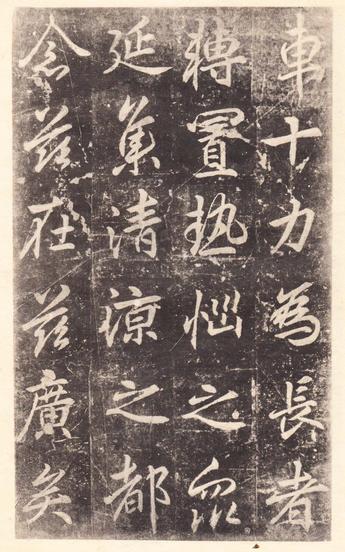 車十力為長者
轉置熱惱之眾
延集清涼之都
念茲在茲廣矣